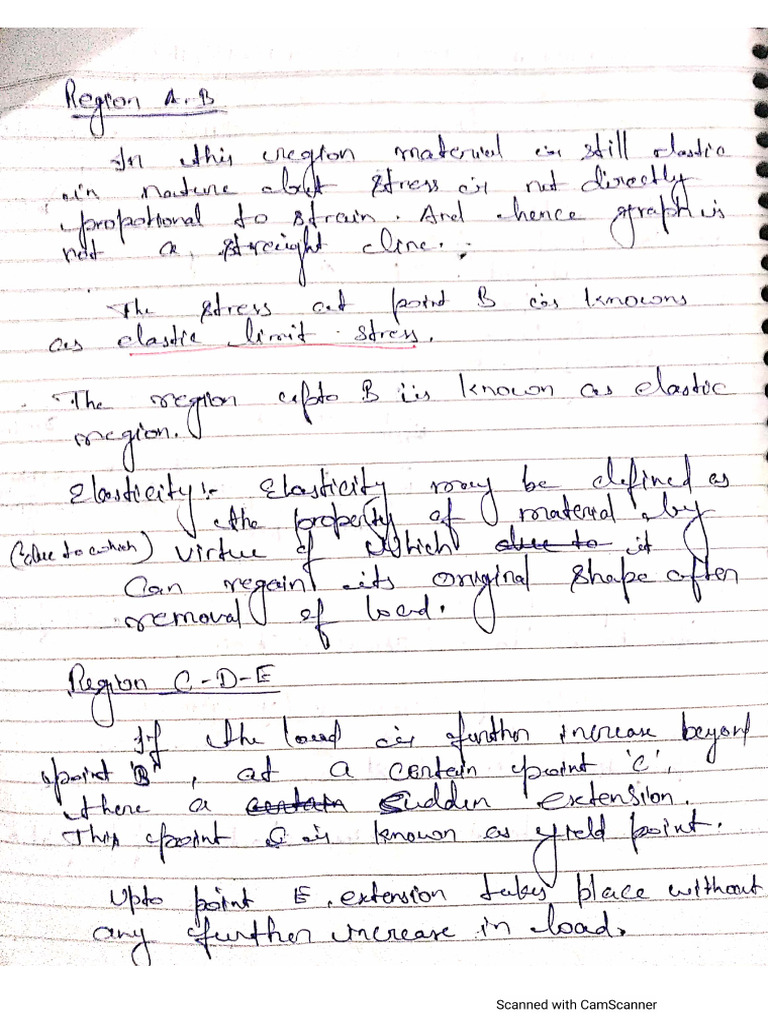 Region A-B
In this region material is still elastic
in nature but stress is not directly
propotional to strain. And hence graph is
not a streight line.
The stress at point B is knowns
as elastic limit stress.
The region upto B is known as elastic
region.
Elasticity:- Elasticity may be defined as
the property of material by
(due to which) virtue of which due to it
Can regain its original shape after
removal of load.
Region C-D-E
If the load is further increase beyond
point 'B', at a certain point 'C',
there a certain Sudden extension.
This point C is known as yield point.
Upto point E, extension takes place without
any further increase in load.
Scanned with CamScanner